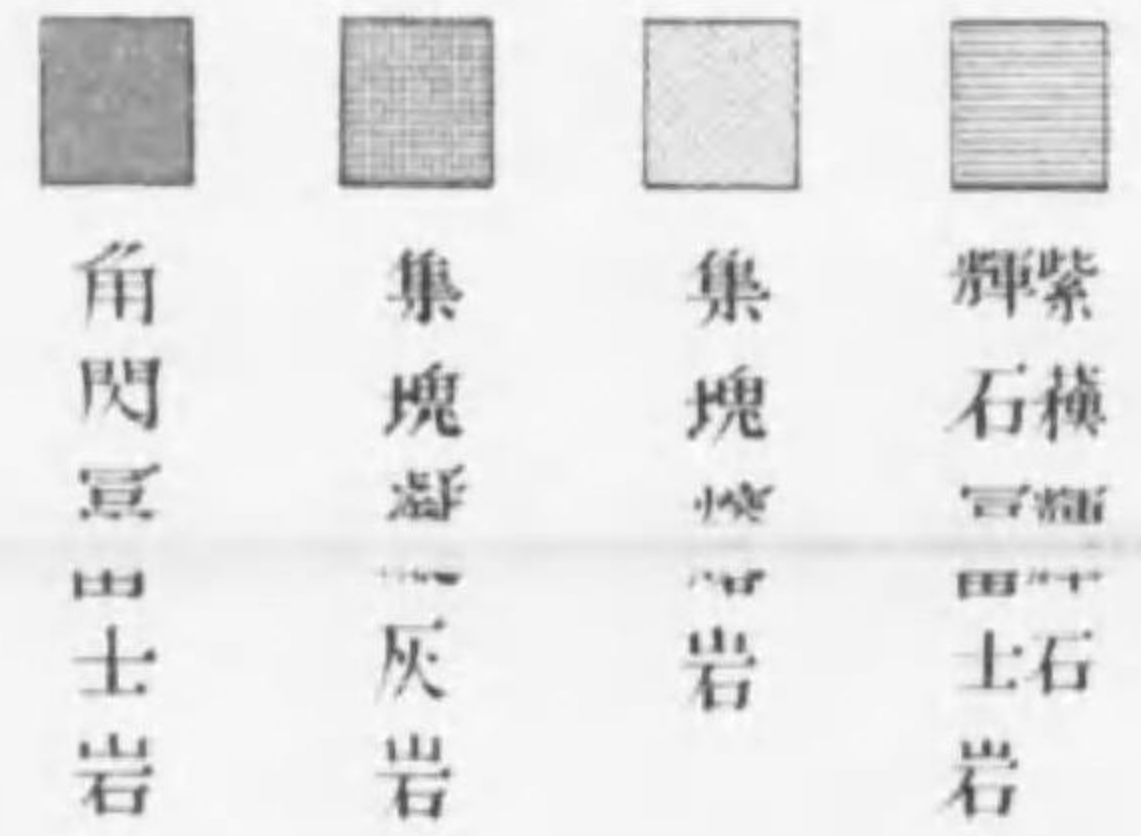 紫蘓輝石
輝石富士岩
集塊熔岩
集塊凝灰岩
角閃富士岩